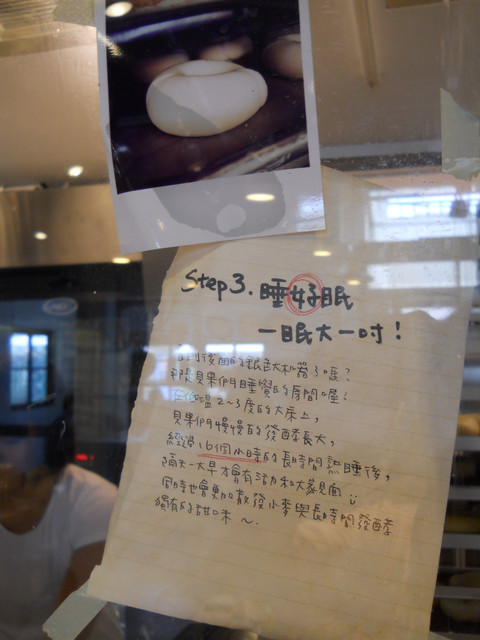 Step 3. 睡好眠
一眠大一吋!
看到後面的銀色大和器了嗎?
那是貝果們睡覺的房間喔!
在低溫2~3度的大床上,
貝果們慢慢的發酵長大,
經過16個小時的長時間熟睡後,
隔天一大早才會有活力和大家見面
同時也會更加散發小麥與長時間發酵
獨有的甜味~.